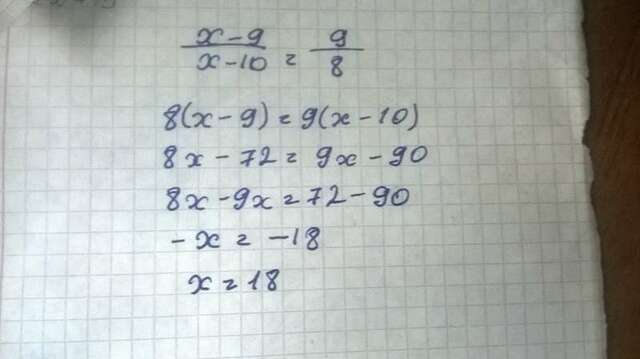 x-9/x-10 = 9/8
8(x-9) = 9(x-10)
8x-72 = 9x-90
8x-9x = 72-90
-x = -18
x = 18